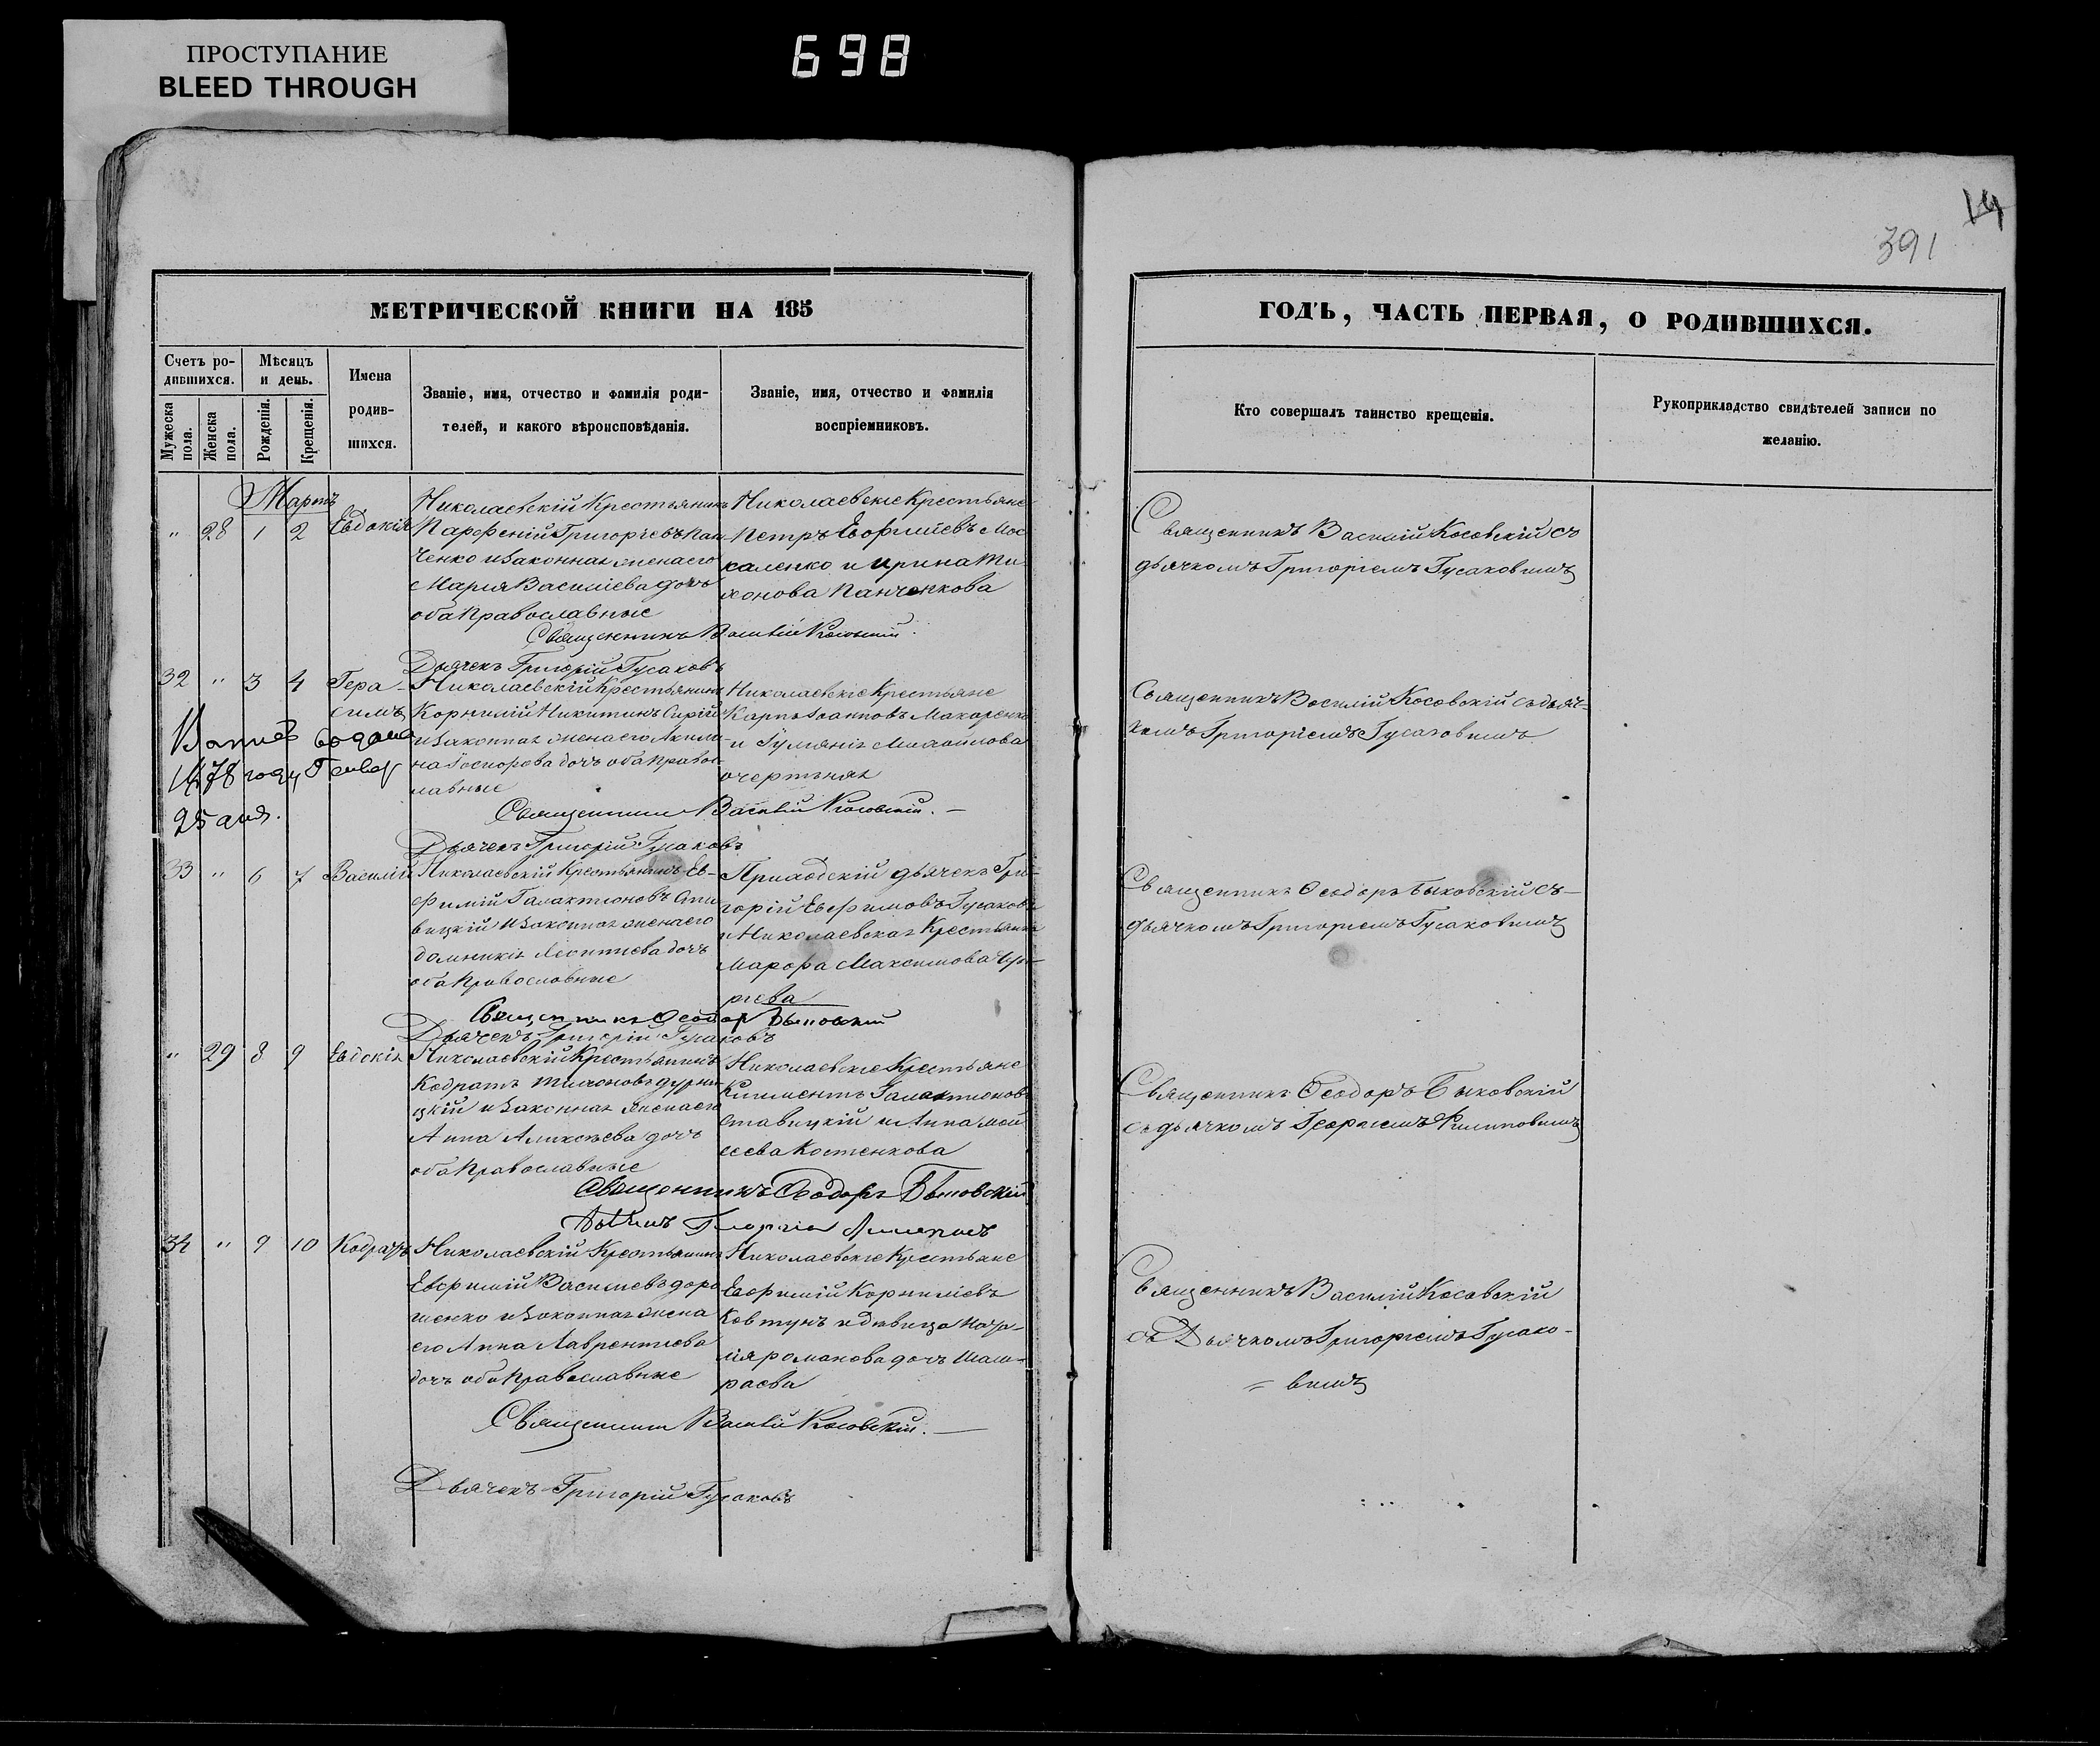 ПРОСТУПАНИЕ
BLEED THROUGH
698
14
391
МЕТРИЧЕСКОЙ КНИГИ НА 185
Счетъ ро-
дившихся.
Мѣсяцъ
и день.
Мужеска
пола.
Женска
пола.
Рожденія.
Крещенія.
Имена
родив-
шихся.
Званіе, имя, отчество и фамилія роди-
телей, и какого вѣроисповѣданія.
Званіе, имя, отчество и фамилія
воспріемниковъ.
ГОДЪ, ЧАСТЬ ПЕРВАЯ, О РОДИВШИХСЯ.
Кто совершалъ таинство крещенія.
Рукоприкладство свидѣтелей записи по
желанію.
Мартъ
" 28 1 2 Евдокія
Николаевскій Крестьянинъ
Парфеній Григорьевъ Пан
ченко и законная жена его
Марія Василіева дочь
оба православные
Николаевскіе Крестьяне
Петръ Мос
каленко и Ирина Ти
хонова Панченкова
Священникъ Василій Косовскій съ
дьячкомъ Григоріемъ Гусаковымъ
Священникъ Василій Косовскій
Дьячекъ Григорій Гусаковъ
32 " 3 4 Гера-
симъ
Николаевскій Крестьянинъ
Корнилій Никитинъ
и законная жена его
дочь оба право
славные
Николаевскіе Крестьяне
Карпъ Іоанновъ Макаренко
и Михайлова
Священникъ Василій Косовскій съ дьяч-
комъ Григоріемъ Гусаковымъ
1878 году
25 дня.
Священникъ Василій Косовскій.
Дьячекъ Григорій Гусаковъ
33 " 6 7 Василій
Николаевскій Крестьянинъ Ев-
фимій Галактіоновъ Ста
вицкій и законная жена его
Домникія Леонтіева дочь
оба православные
Приходскій дьячекъ Гри-
горій Евфимовъ Гусаковъ
и Николаевская Крестьянка
Марфа Максимова
Священникъ Ѳеодоръ Быковскій съ
дьячкомъ Григоріемъ Гусаковымъ
Священникъ Ѳеодоръ Быковскій
Дьячекъ Григорій Гусаковъ
" 29 8 9 Евдокія
Николаевскій Крестьянинъ
Кодратъ Тихоновъ
цкій и законная жена его
Анна Алексѣева дочь
оба православные
Николаевскіе Крестьяне
Климентъ Галактіоновъ
Ставицкій и Анна Мои
сеева Костенкова
Священникъ Ѳеодоръ Быковскій
съ дьячкомъ Георгіемъ Филиповымъ
Священникъ Ѳеодоръ Быковскій
34 " 9 10 Кодратъ
Николаевскій Крестьянинъ
Евфимій Василіевъ Доро
шенко и законная жена
его Анна Лаврентіева
дочь оба православные
Николаевскіе Крестьяне
Евфимій Корниліевъ
Ковтунъ и дѣвица Ната-
лія Романова дочь
Священникъ Василій Косовскій
съ Дьячкомъ Григоріемъ Гусако-
= вымъ
Священникъ Василій Косовскій.
Дьячекъ Григорій Гусаковъ